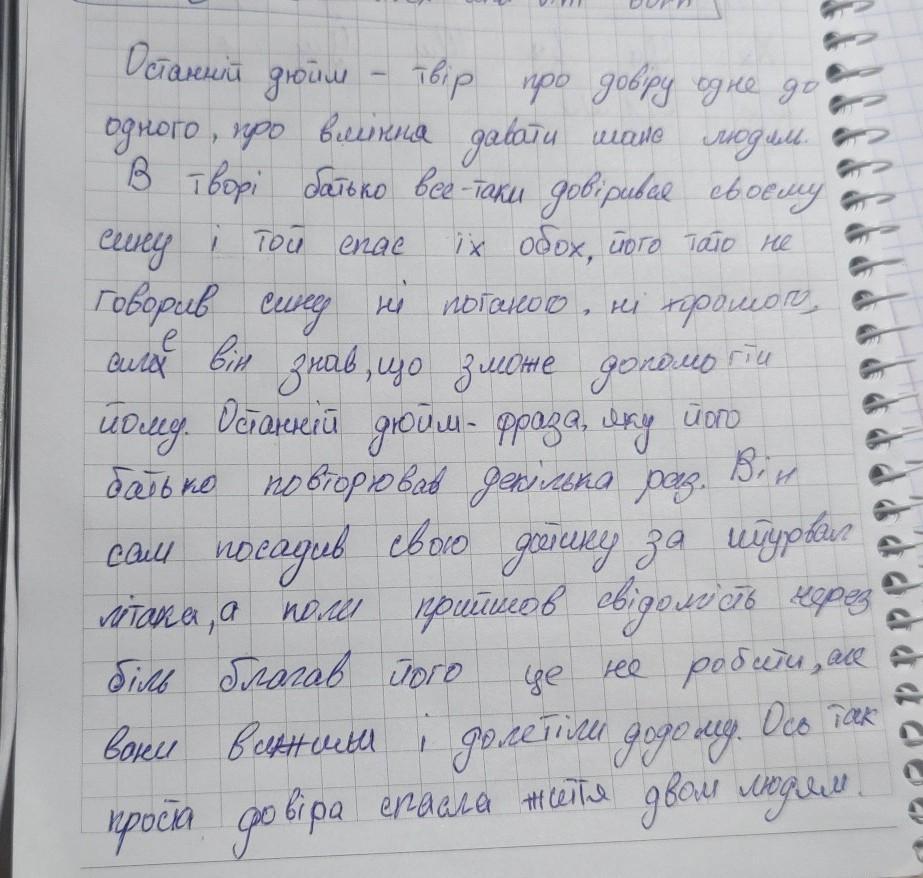 Останній дюйм - твір про довіру одне до
одного, про вміння давати шанс людям.
В творі батько все-таки довірився своєму
сину і той спас їх обох, його тато не
говорив сину ні поганого, ні хорошого,
але він знав, що зможе допомогти
йому. Останній дюйм - фраза, яку його
батько повторював декілька раз. Він
сам посадив свою дитину за штурвал
літака, а коли прийшов свідомість через
біль благав його це не робити, але
вони вижили і долетіли додому. Ось так
проста довіра спасла життя двом людям.